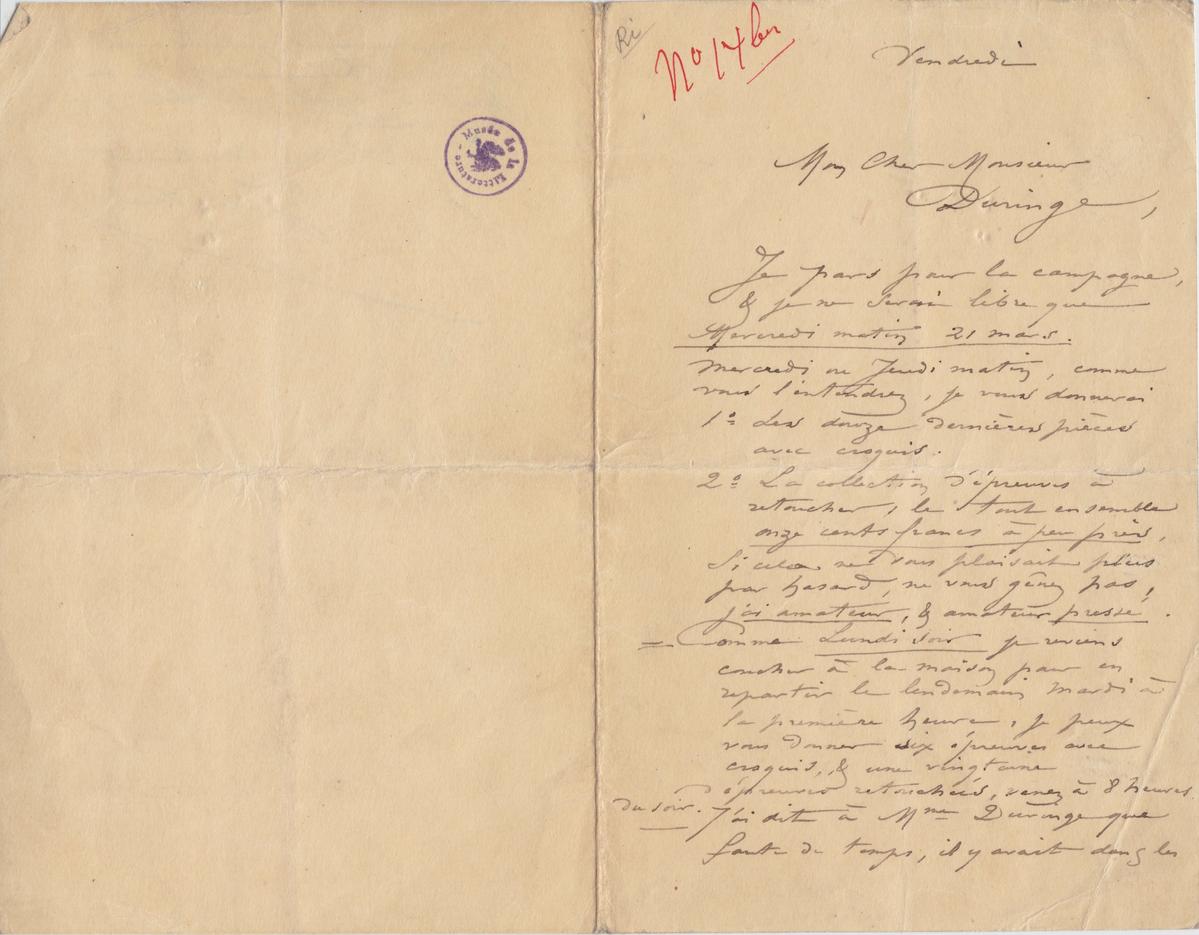 Musée de la Littérature
Ri
No 174 ter
Vendredi
Mon Cher Monsieur
Duringe,
Je pars pour la campagne,
& je ne serai libre que
Mercredi matin 21 mars.
Mercredi ou Jeudi matin, comme
vous l'entendrez, je vous donnerai
1º Les douze dernières pièces
avec croquis.
2º La collection d'épreuves à
retoucher, le tout ensemble
onze cents francs à peu près.
Si cela ne vous plaisait plus
par hasard, ne vous gênez pas,
j'ai amateur, & amateur pressé.
= Comme Lundi soir je reviens
coucher à la maison pour en
repartir le lendemain Mardi à
la première heure, je peux
vous donner six épreuves avec
croquis, & une vingtaine
d'épreuves retouchées, venez à 8 heures
du soir. J'ai dit à Mme Duringe que
faute de temps, il y avait dans les